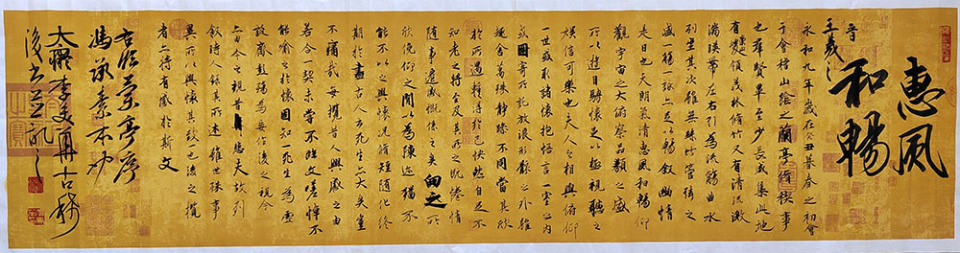 惠風
和暢
永和九年歲在癸丑暮春之初會
于會稽山陰之蘭亭脩稧事
也羣賢畢至少長咸集此地
有崇領茂林脩竹又有清流激
湍暎帶左右引為流觴曲水
列坐其次雖無絲竹管弦之
盛一觴一詠亦足以暢敘幽情
是日也天朗氣清惠風和暢仰
觀宇宙之大俯察品類之盛
所以遊目騁懷足以極視聽之
娛信可樂也夫人之相與俯仰
一世或取諸懷抱悟言一室之內
或因寄所託放浪形骸之外雖
趣舍萬殊靜躁不同當其欣
於所遇暫得於己快然自足不
知老之將至及其所之既惓情
隨事遷感慨係之矣向之所
欣俛仰之間以為陳迹猶不
能不以之興懷況脩短隨化終
期於盡古人云死生亦大矣豈
不痛哉每攬昔人興感之由
若合一契未嘗不臨文嗟悼不
能喻之於懷固知一死生為虛
誕齊彭殤為妄作後之視今
亦由今之視昔悲夫故列
敘時人錄其所述雖世殊事
異所以興懷其致一也後之攬
者亦將有感於斯文
右臨蘭亭序
馮承素本